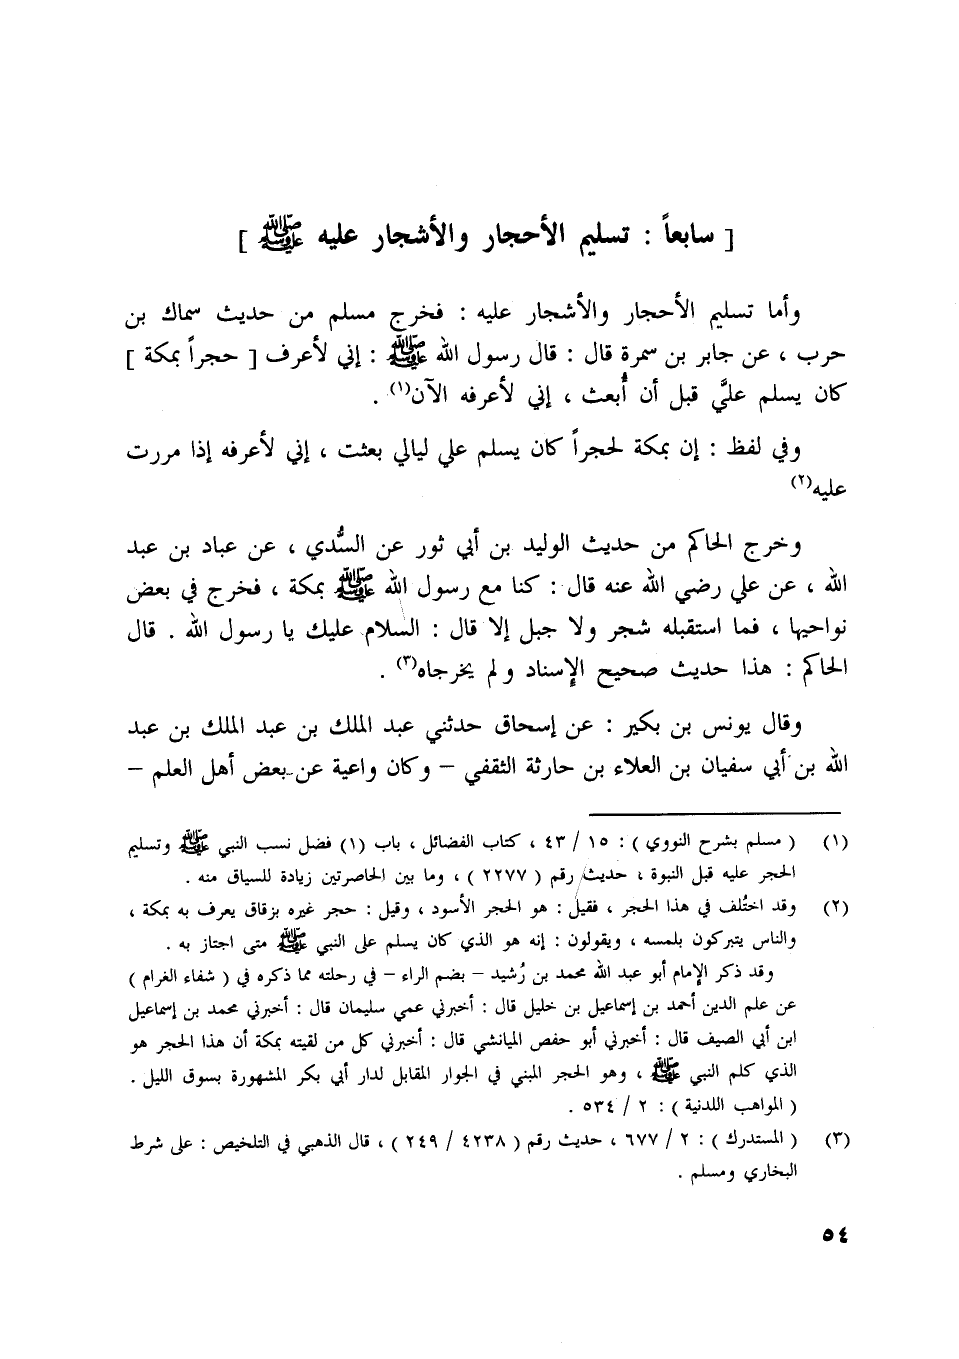 [ سابعاً : تسليم الأحجار والأشجار عليه ﷺ ]
وأما تسليم الأحجار والأشجار عليه : فخرج مسلم من حديث سماك بن
حرب ، عن جابر بن سمرة قال : قال رسول الله ﷺ : إني لأعرف [ حجراً بمكة ]
كان يسلم عليَّ قبل أن أُبعث ، إني لأعرفه الآن(١) .
وفي لفظ : إن بمكة لحجراً كان يسلم علي ليالي بعثت ، إني لأعرفه إذا مررت
عليه(٢)
وخرج الحاكم من حديث الوليد بن أبي ثور عن السُّدي ، عن عباد بن عبد
الله ، عن علي رضي الله عنه قال : كنا مع رسول الله ﷺ بمكة ، فخرج في بعض
نواحيها ، فما استقبله شجر ولا جبل إلا قال : السلام عليك يا رسول الله . قال
الحاكم : هذا حديث صحيح الإسناد ولم يخرجاه(٣) .
وقال يونس بن بكير : عن إسحاق حدثني عبد الملك بن عبد الملك بن عبد
الله بن أبي سفيان بن العلاء بن حارثة الثقفي – وكان واعية عن بعض أهل العلم –
(١) ( مسلم بشرح النووي ) : ١٥ / ٤٣ ، كتاب الفضائل ، باب (١) فضل نسب النبي ﷺ وتسليم
الحجر عليه قبل النبوة ، حديث رقم ( ٢٢٧٧ ) ، وما بين الحاصرتين زيادة للسياق منه .
(٢) وقد اختُلف في هذا الحجر ، فقيل : هو الحجر الأسود ، وقيل : حجر غيره بزقاق يعرف به بمكة ،
والناس يتبركون بلمسه ، ويقولون : إنه هو الذي كان يسلم على النبي ﷺ متى اجتاز به .
وقد ذكر الإمام أبو عبد الله محمد بن رُشيد – بضم الراء – في رحلته مما ذكره في ( شفاء الغرام )
عن علم الدين أحمد بن إسماعيل بن خليل قال : أخبرني عمي سليمان قال : أخبرني محمد بن إسماعيل
ابن أبي الصيف قال : أخبرني أبو حفص الميانشي قال : أخبرني كل من لقيته بمكة أن هذا الحجر هو
الذي كلم النبي ﷺ ، وهو الحجر المبني في الجوار المقابل لدار أبي بكر المشهورة بسوق الليل .
( المواهب اللدنية ) : ٢ / ٥٣٤ .
(٣) ( المستدرك ) : ٢ / ٦٧٧ ، حديث رقم ( ٤٢٣٨ / ٢٤٩ ) ، قال الذهبي في التلخيص : على شرط
البخاري ومسلم .
٥٤